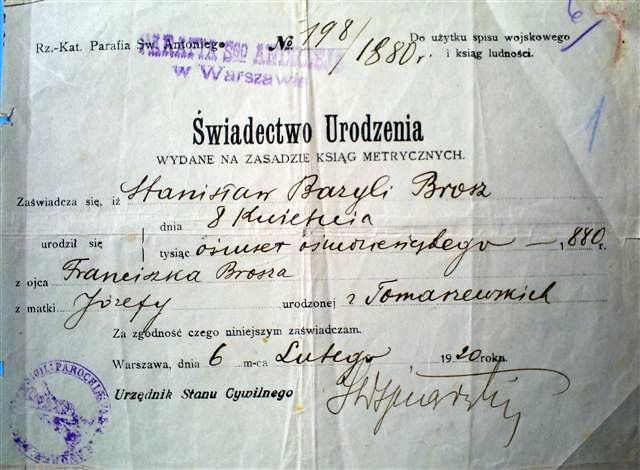 Rz.-Kat. Parafia Św. Antoniego № 198/1880 r. Do użytku spisu wojskowego
i ksiąg ludności.
PARAFIA Sgo ANDRZEJA
w Warszawie
Świadectwo Urodzenia
WYDANE NA ZASADZIE KSIĄG METRYCZNYCH.
Zaświadcza się, iż Stanisław Bazyli Brosz
dnia 8 Kwietnia
urodził się
tysiąc ośmset ośmdziesiątego — 1880 r.
z ojca Franciszka Brosza
z matki Józefy urodzonej z Tomaszewskich
Za zgodność czego niniejszym zaświadczam.
Warszawa, dnia 6 m-ca Lutego 1920 roku.
Urzędnik Stanu Cywilnego